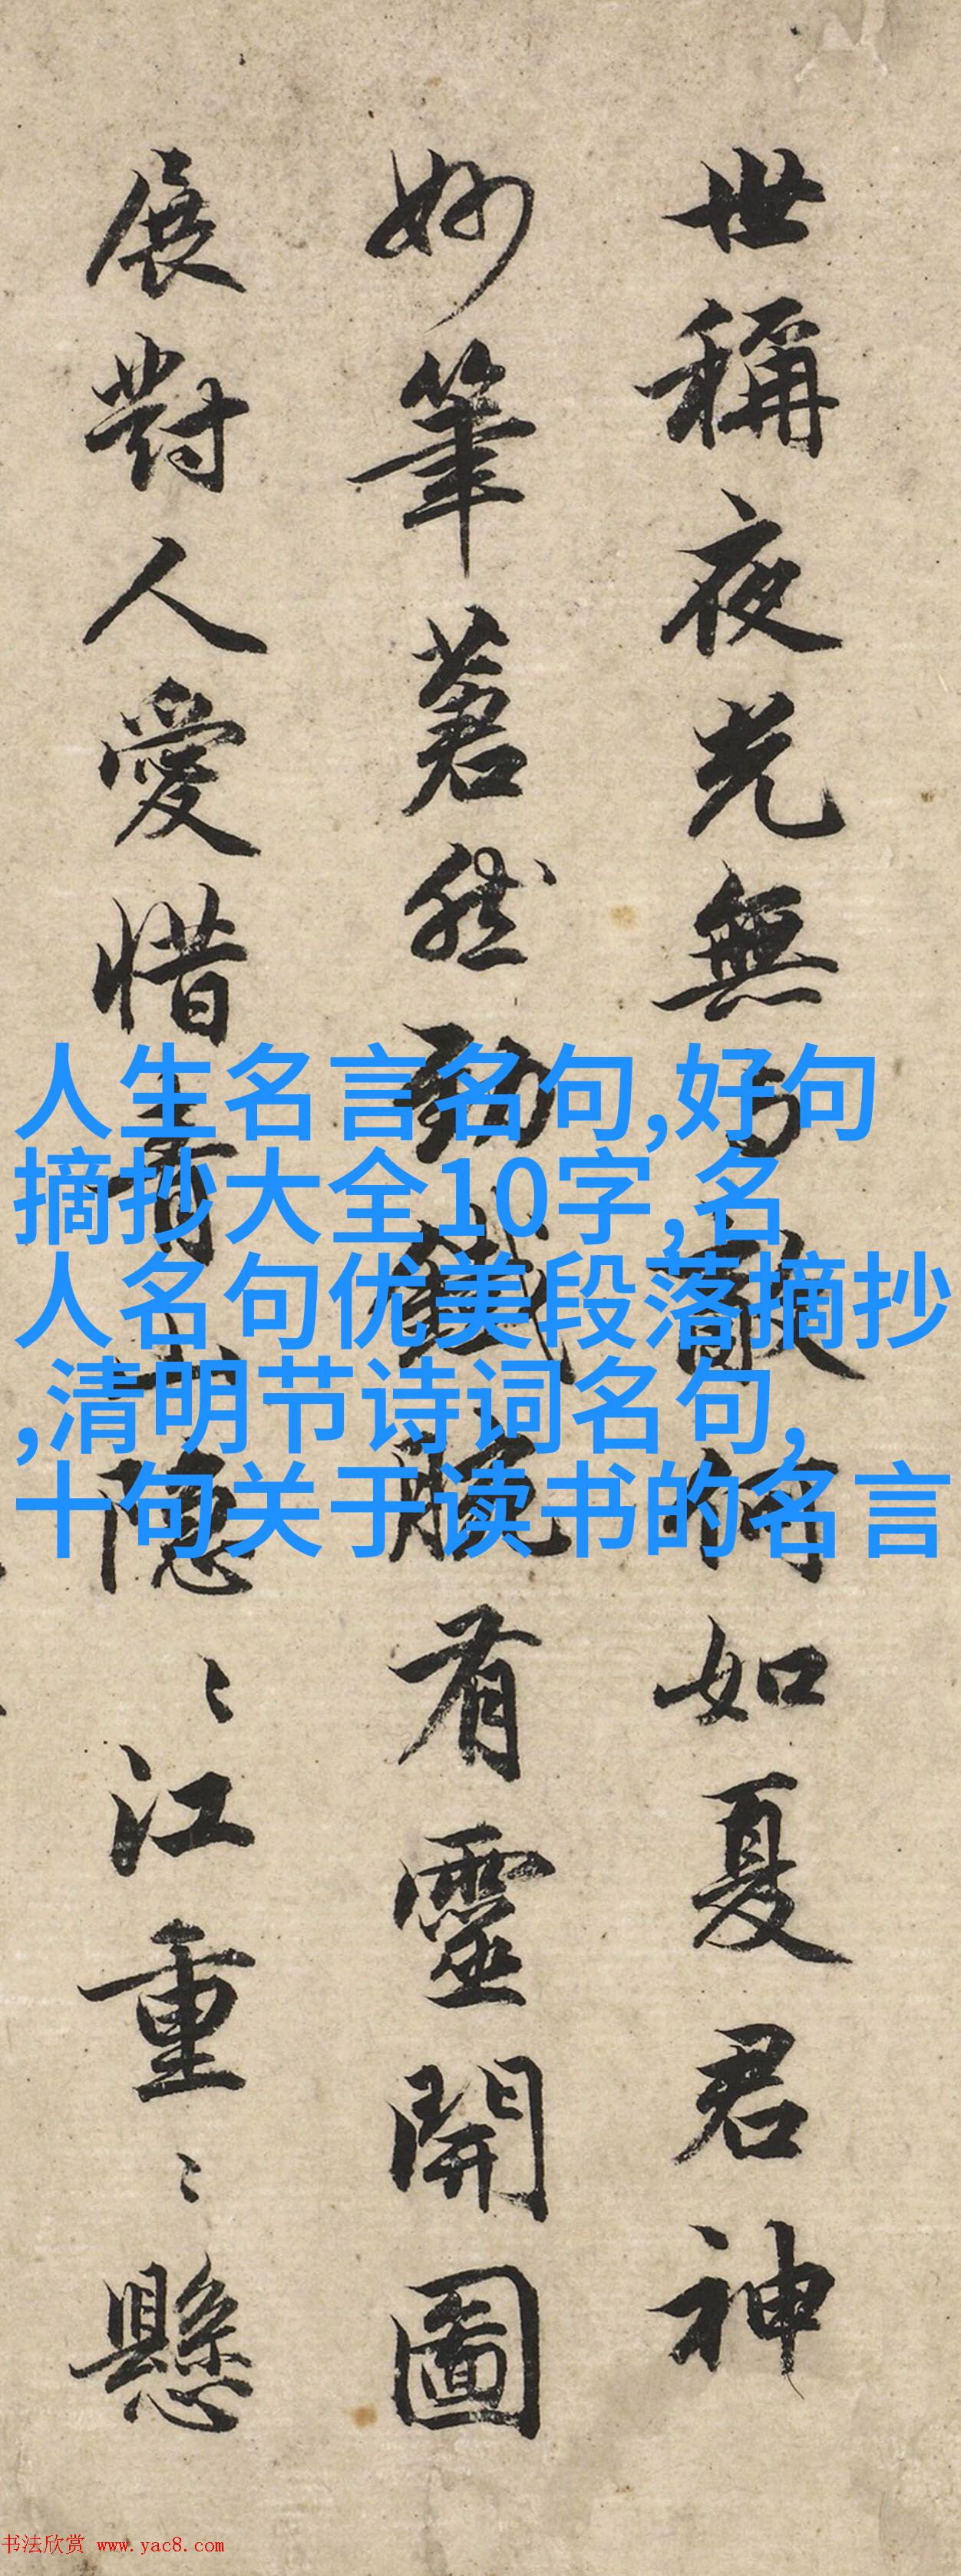 世稱夜光無與敵何如夏君神
妙筆著然勁鐵腕有靈開圖
展對人愛惜青山隱〻江重〻懸
人生名言名句,好句
摘抄大全10字,名
人名句优美段落摘抄
,清明节诗词名句,
十句关于读书的名言
书法欣赏 www.yac8.com